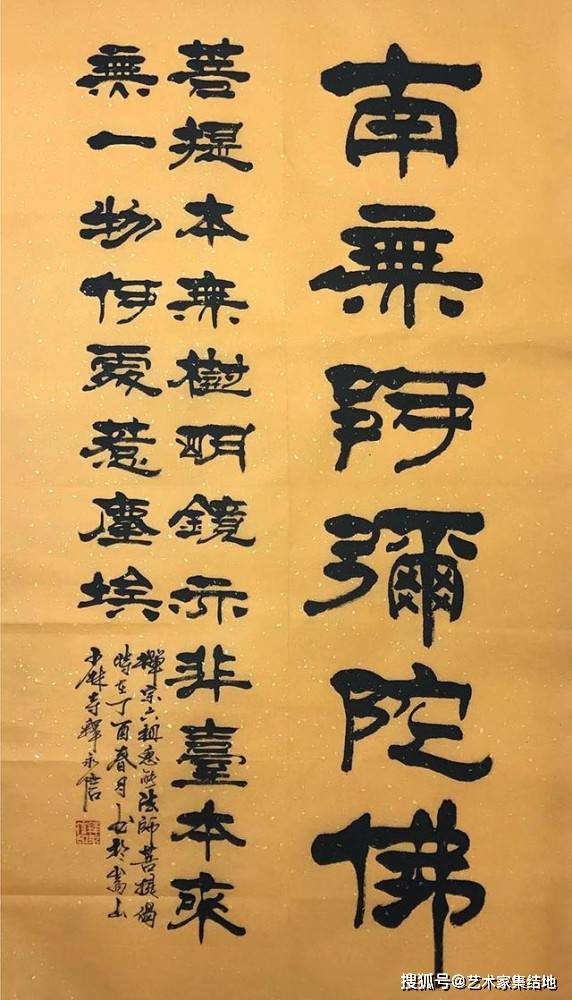 南無阿彌陀佛
菩提本無樹明鏡亦非臺本來
無一物何處惹塵埃
禪宗六祖惠能法師菩提偈
時在丁酉春月書於嵩山
少林寺釋永信
搜狐号@艺术家集结地